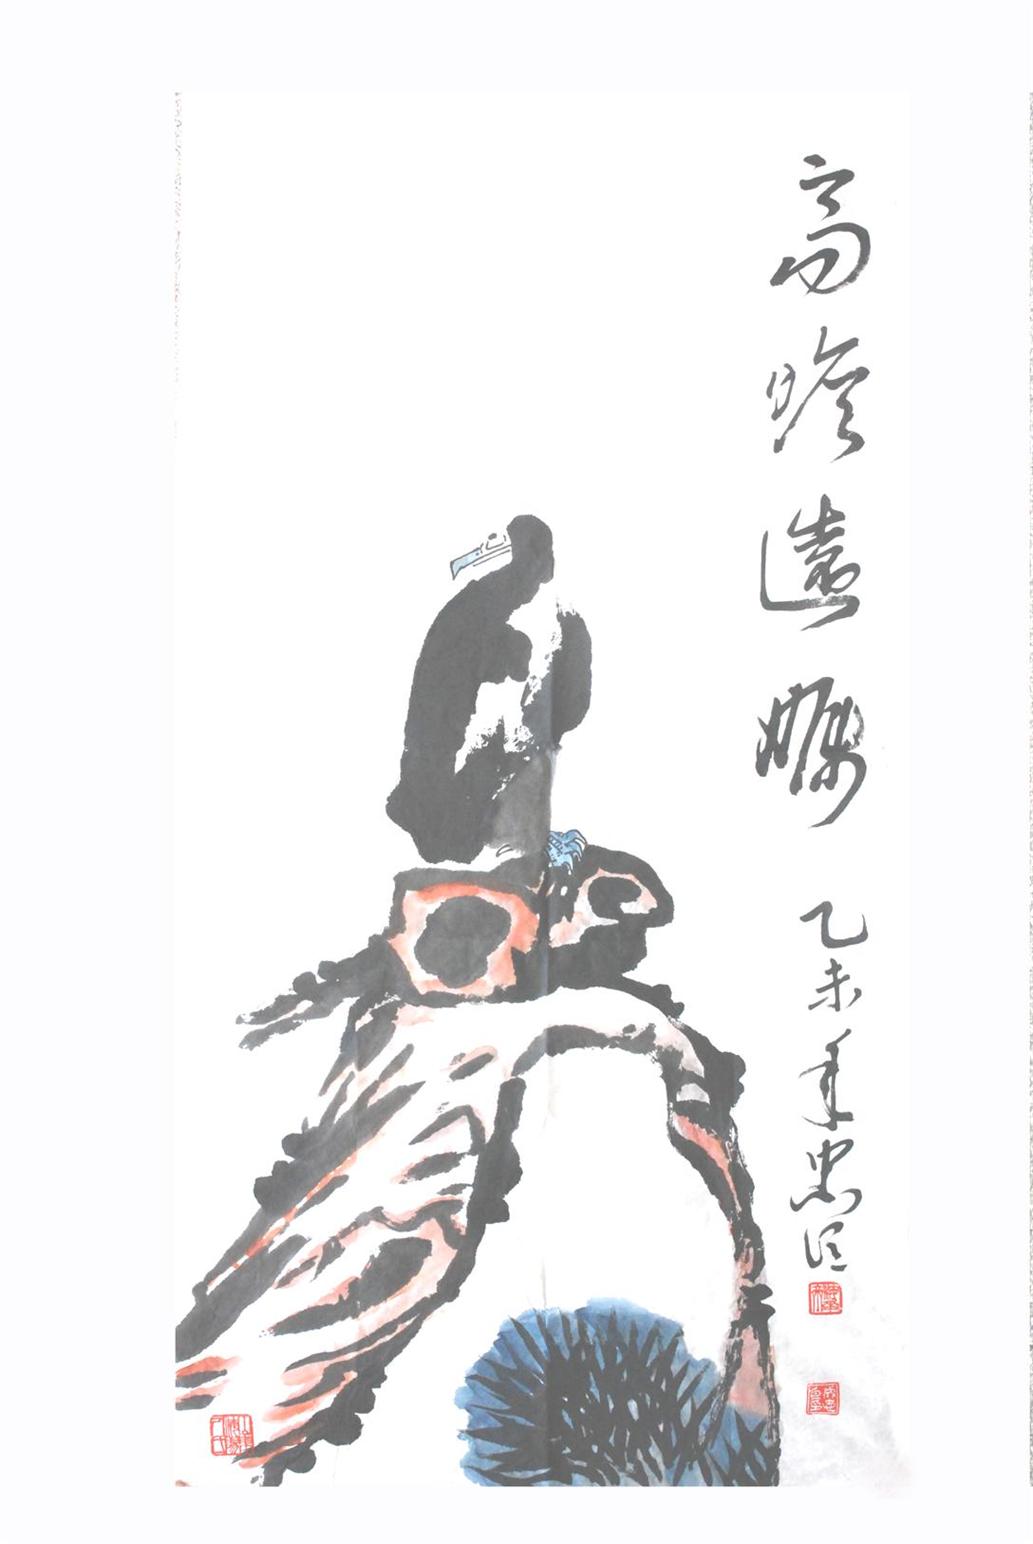 高瞻遠矚 乙未年忠信